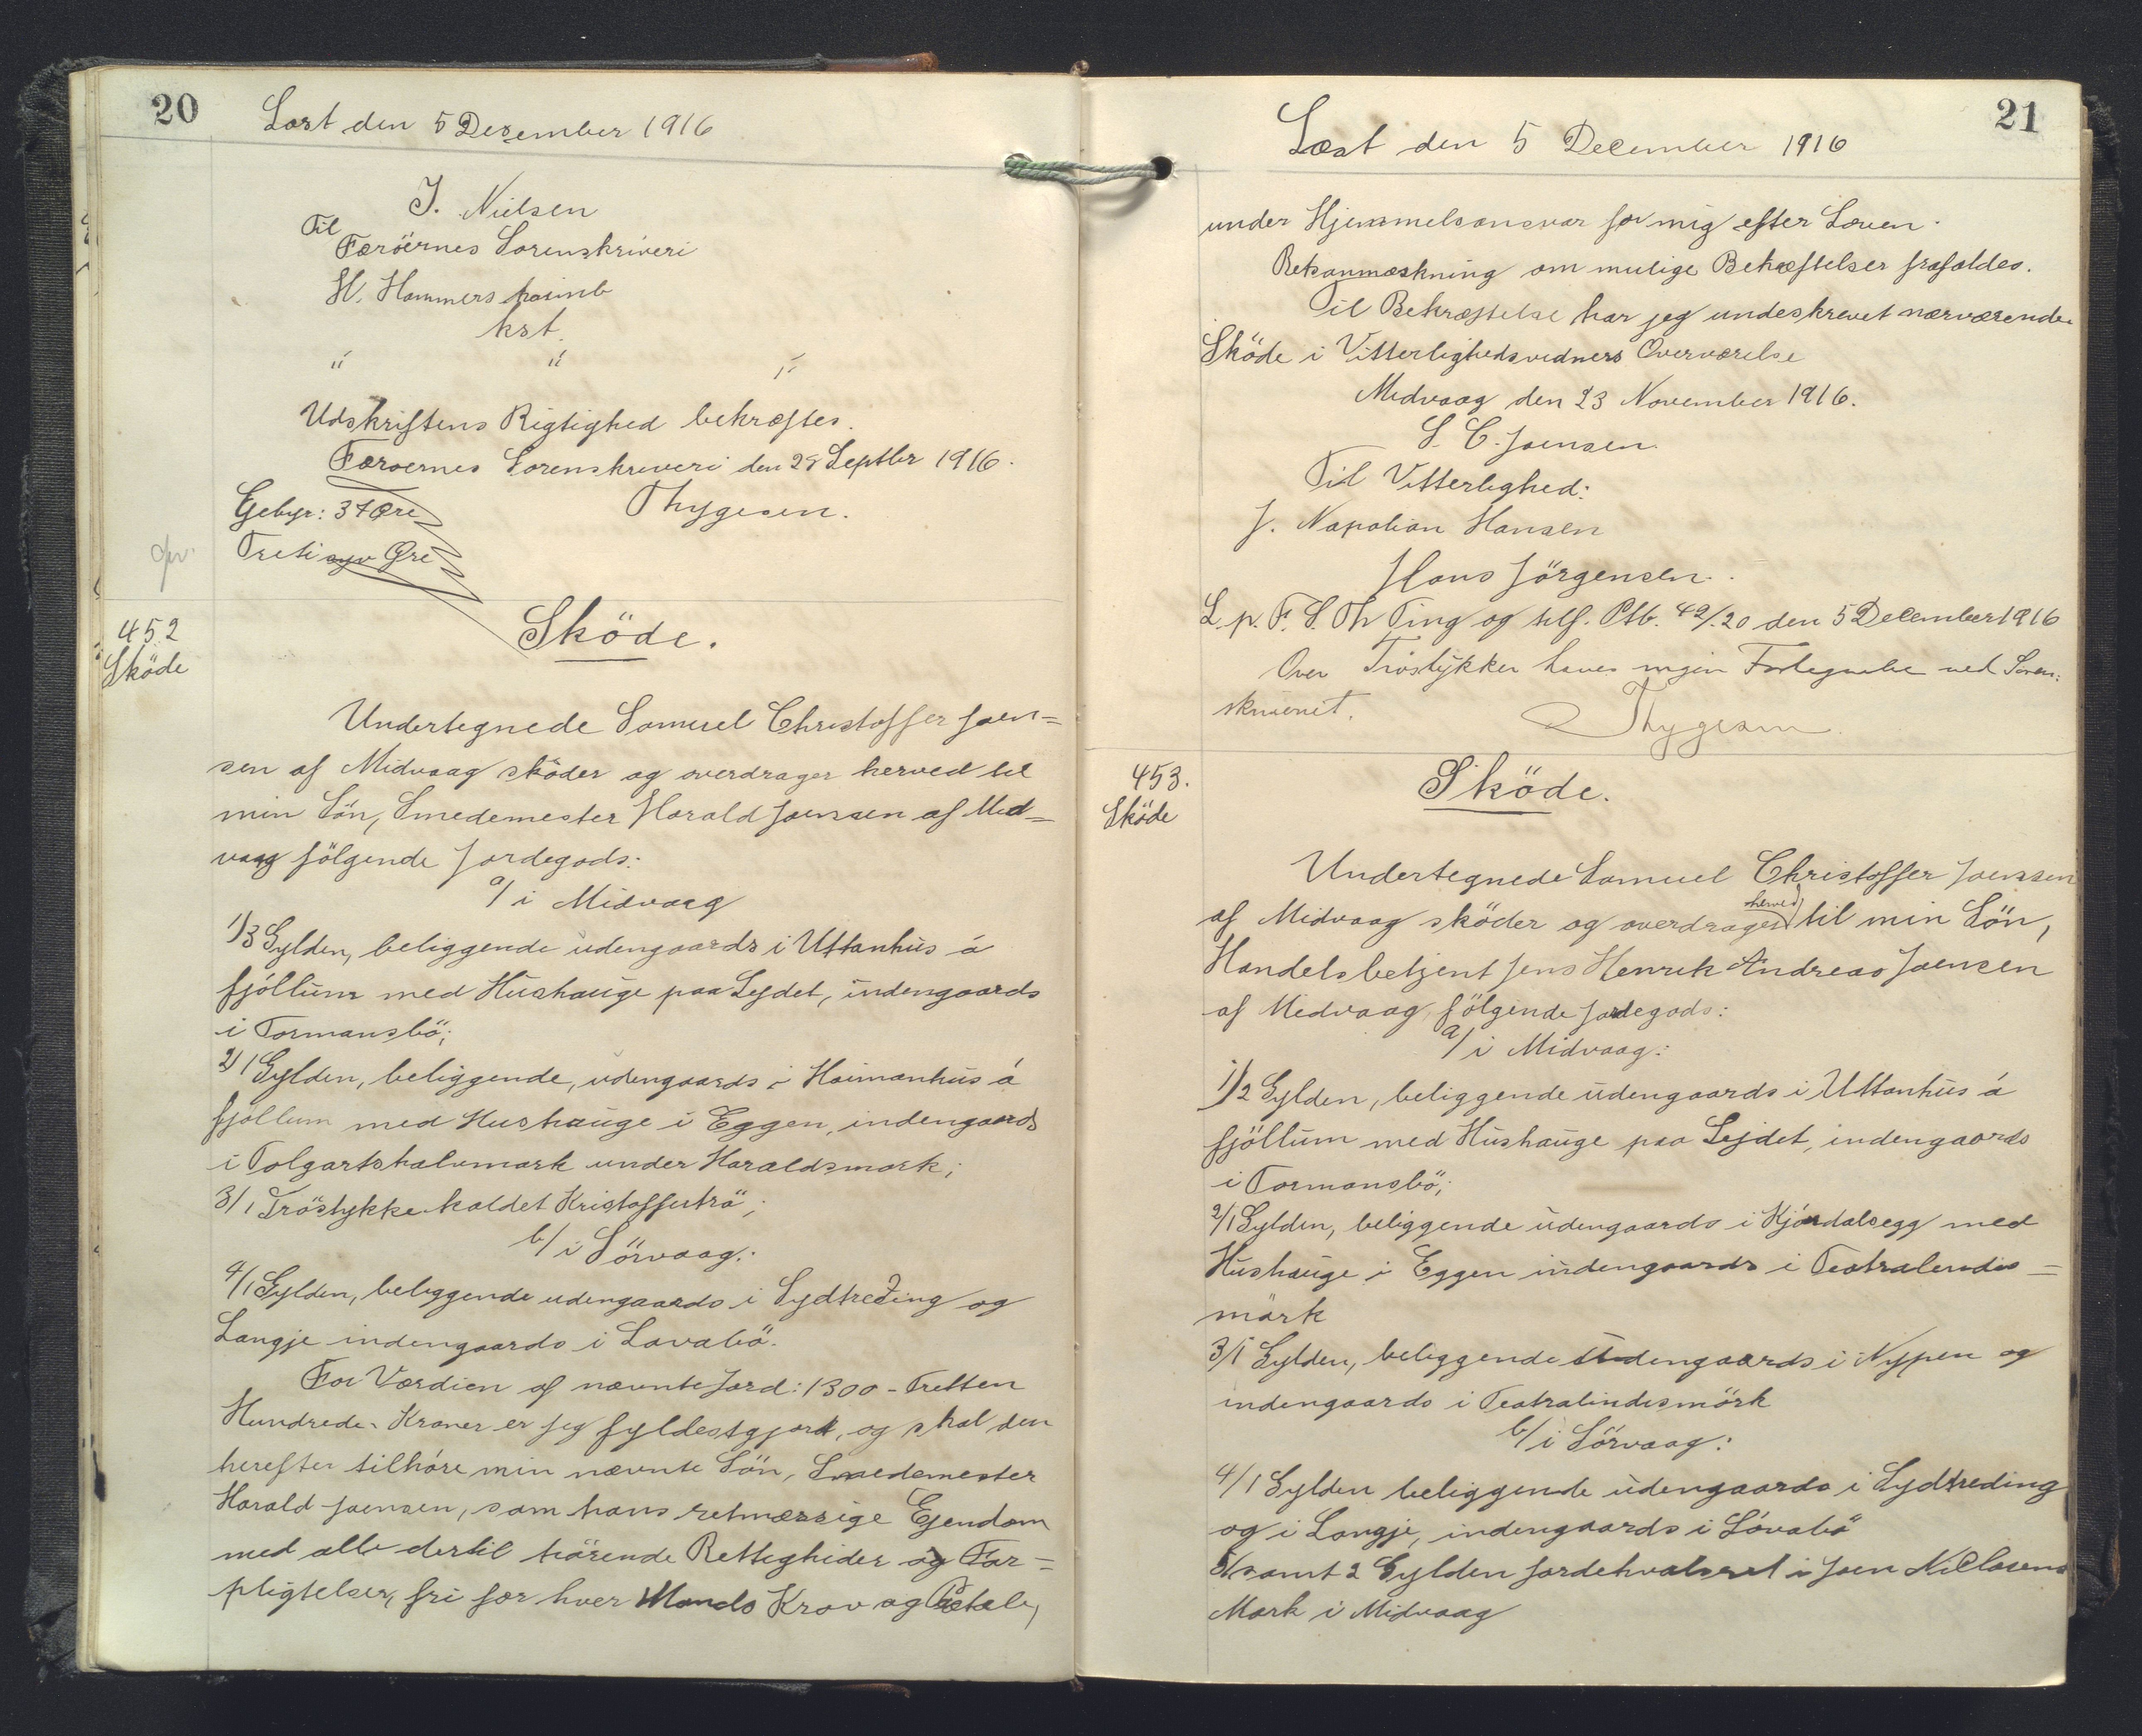 20
Læst den 5 Desember 1916
J. Nielsen
Til
Færöernes Sorenskriveri
H. Hammershaimb
kst.
" " "
Udskriftens Rigtighed bekræftes.
Færoernes Sorenskriveri den 28 Septbr 1916.
Gebyr: 37 Øre
Thygesen.
Tretisyv Øre
452
Sköde
Sköde.
Undertegnede Samuel Christoffer Joen=
sen af Midvaag sköder og overdrager herved til
min Sön, Smedemester Harald Joensen af Mid=
vaag fölgende Jordegods:
a/ i Midvaag
1/3 Gylden, beliggende udengaards i Uttanhus á
fjöllum med Hushauge paa Lejdet, indengaards
i Tormansbö;
2/1 Gylden, beliggende, udengaards i Haimanhus á
fjøllum med Hushauge i Eggen, indengaards
i Tolgartshalvmark under Haraldsmark;
3/1 Tröstykke kaldet Kristoffertrö;
b/ i Sörvaag:
4/1 Gylden, beliggende udengaards i Sydtreding og
Langje indengaards i Lavabö.
For Værdien af nævnte Jord: 1300 - Tretten
Hundrede - Kroner er jeg fyldestgjort, og skal den
herefter tilhöre min nævnte Sön, Smedemester
Harald Joensen, som hans retmæssige Ejendom
med alle dertil hörende Rettigheder og For=
pligtelser, fri for hver Mands Krav og Påtale,
21
Læst den 5 December 1916
under Hjemmelsansvar for mig efter Loven.
Retsanmærkning om mulige Behæftelser frafaldes.
Til Bekræftelse har jeg undeskrevet nærværende
Sköde i Vitterlighedsvidners Overværelse
Midvaag den 23 November 1916.
S. C. Joensen.
Til Vitterlighed:
J. Napolian Hansen
Hans Jörgensen.
L. p. F. S. Th Ting og tilf. Ptb. 42/20 den 5 December 1916
Over Tröstykker haves ingen Fortegnelse ved Soren:
skriveriet.
Thygesen
453.
Sköde
Sköde.
Undertegnede Samuel Christoffer Joensen
af Midvaag sköder og overdrager herved til min Sön,
Handelsbetjent Jens Henrik Andreas Joensen
af Midvaag, fölgende Jordegods:
a/ i Midvaag:
1/2 Gylden, beliggende udengaards i Uttanhus á
fjöllum med Hushauge paa Lejdet, indengaards
i Tormansbö;
2/1 Gylden, beliggende udengaards i Kjórdalsegg med
Hushauge i Eggen indengaards i Teatralendis=
mörk
3/1 Gylden, beliggende udengaards i Nypen og
indengaards i Teatralindismörk
b/ i Sörvaag:
4/1 Gylden beliggende udengaards i Sydtreding
og i Langje, indengaards i Lóvabö
5/ samt 2 Gylden Jordehvalsret i Joen Niclasens
Mark i Midvaag